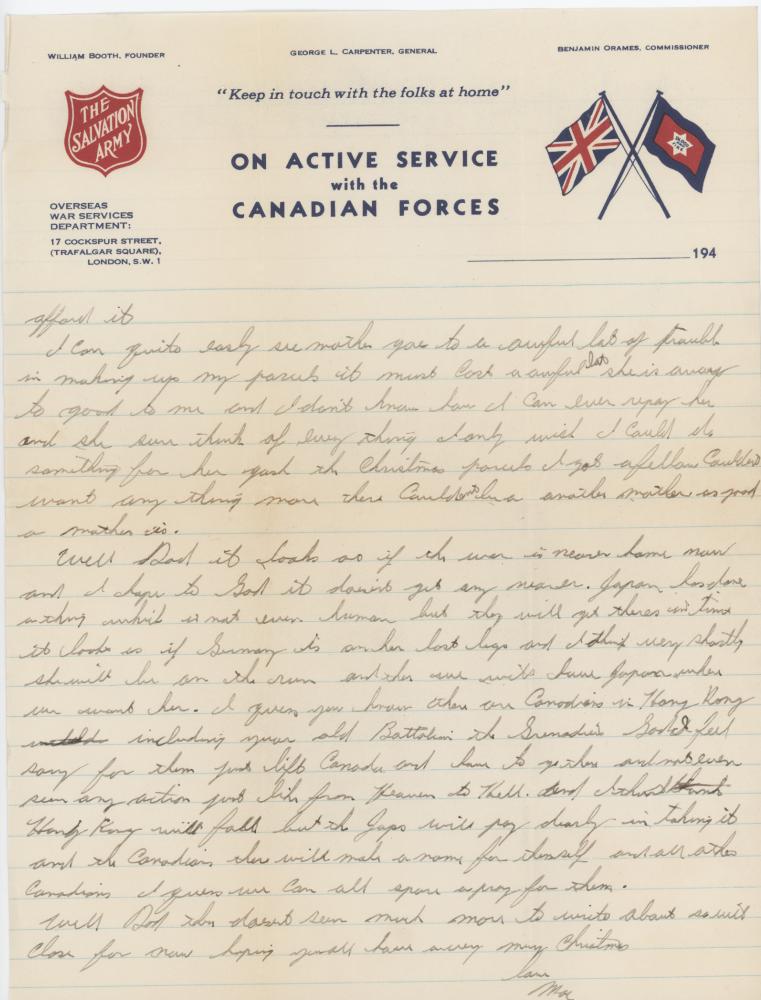 WILLIAM BOOTH, FOUNDER
GEORGE L. CARPENTER, GENERAL
BENJAMIN ORAMES, COMMISSIONER
THE
SALVATION
ARMY
"Keep in touch with the folks at home"
ON ACTIVE SERVICE
with the
CANADIAN FORCES
OVERSEAS
WAR SERVICES
DEPARTMENT:
17 COCKSPUR STREET,
(TRAFALGAR SQUARE),
LONDON, S.W. 1
194
afford it
I can quite easly see mother goes to a awful lot of trouble
in making up my parcels it must cost a awful lot she is away
to good to me and I don't know how I can ever repay her
and she sure think of every thing I only wish I could do
something for her gosh the Christmas parcels I got a fellow couldent
want any thing more there couldent be a another mother as good
a mother is.
Well Dad it looks as if the war is nearer home now
and I hope to God it doesent get any nearer. Japan has done
a thing which is not even human but they will get theres in time
it looks as if Germany is on her last legs and I think very shortly
she will be on the run and then we will have Japan where
we want her. I guess you know there are Canadians in Hong Kong
including your old Battalion the Grenadiers God I feel
sorry for them just left Canada and have to go there and not even
seen any action just like from Heaven to Hell. and I think
Hong Kong will fall but the Japs will pay dearly in taking it
and the Canadians there will make a name for themself and all other
Canadians I guess we can all spare a pray for them.
Well Dad there doesent seem much more to write about so will
close for now hoping you all have a very merry Christmas
love
Moe